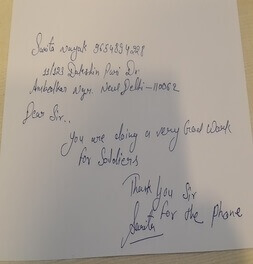 Sarita nayak 9654894228
11/123 Dakshin Puri Dr.
Ambedkar ngr. New Delhi-110062
Dear Sir..
You are doing a very Good Work
for Soldiers
Thank you Sir
for the phone
Sarita